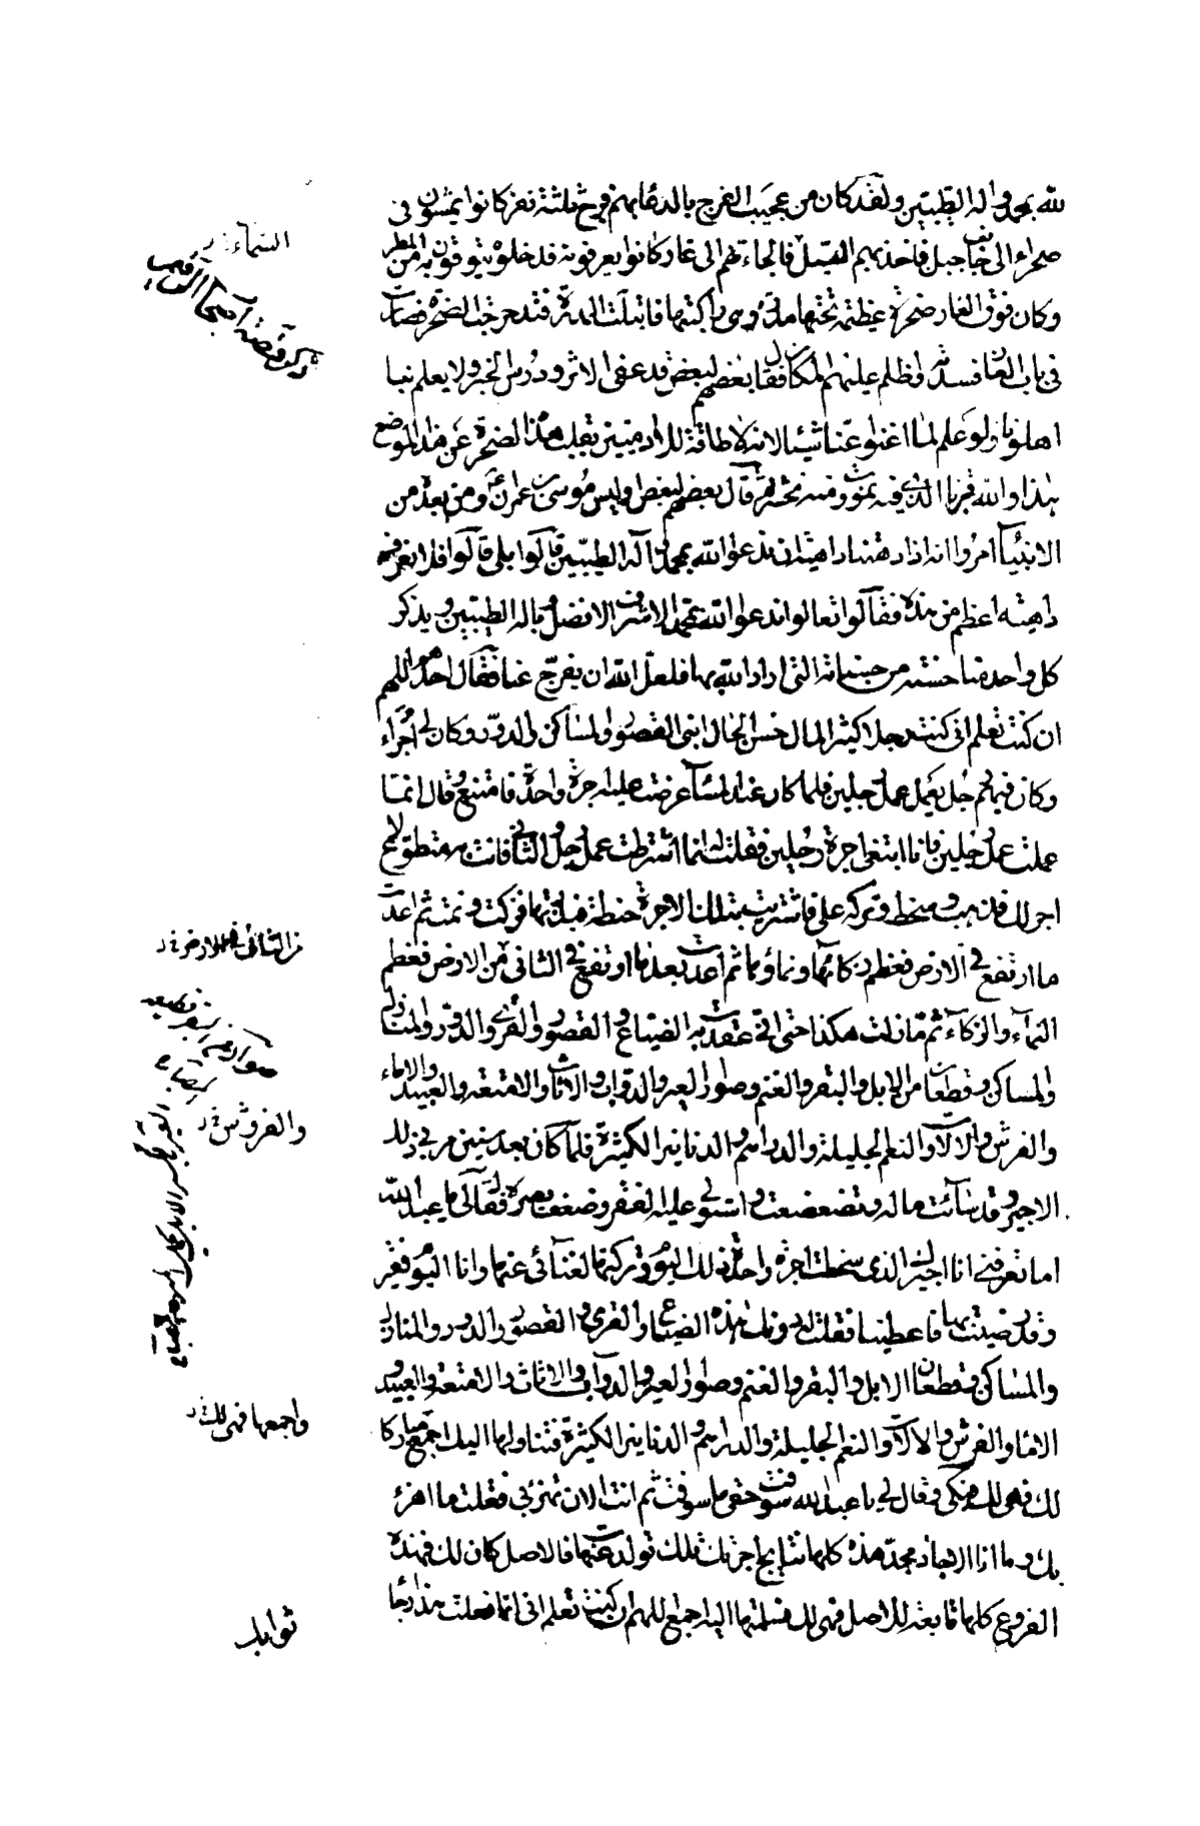 لله بمحمد واله الطيبين ولقد كان من عجيب الفرج بالدعا بهم فرج ثلثة نفر كانوا يمشون في
صحراء الى جانب جبل فاخذتهم السماء فالجاءتهم الى غار كانوا يعرفونه فدخلوه يتوقون به من المطر
وكان فوق الغار صخرة عظيمة تحتها مدرة هي راكبتها فابتلت المدرة فتدحرجت الصخرة فصارت
في باب الغار فسدته واظلم عليهم المكان فقال بعضهم لبعض قد عفى الاثر ودرس الخبر ولا يعلم بنا
اهلونا ولو علموا لما اغنوا عنا شيئا لانه لا طاقة للادميين بقلب هذه الصخرة عن هذا الموضع
هذا والله قبرنا الذي فيه نموت ومنه نحشر ثم قال بعضهم لبعض اوليس موسى بن عمران ع ومن بعده من
الانبياء امروا انه اذا دهتنا داهية ان ندعوا الله بمحمد واله الطيبين قالوا بلى قالوا فلا نعرف
داهية اعظم من هذه فقالوا تعالوا ندعوا الله بمحمد الاشرف الافضل وباله الطيبين ويذكر
كل واحد منا حسنة من حسناته التي اراد الله بها فلعل الله ان يفرج عنا فقال احدهم اللهم
ان كنت تعلم اني كنت رجلا كثير المال حسن الحال ابني القصور والمساكن والدور وكان لي اجراء
وكان فيهم رجل يعمل عمل رجلين فلما كان عند المساء عرضت عليه اجرة واحدة فامتنع وقال انما
عملت عمل رجلين فانا ابتغي اجرة رجلين فقلت له انما اشترطت عمل رجل والثاني فانت به متطوع لا
اجر لك فذهب وسخط وتركه علي فاشتريت بتلك الاجرة حنطة فبذرتها فزكت ونمت ثم اعدت
ما ارتفع في الارض فعظم زكائها ونماؤها ثم اعدت بعد ما ارتفع في الثاني من الارض فعظم
النماء والزكاء ثم ما زلت هكذا حتى اني عقدت به الضياع والقصور والقرى والدور والمنازل
والمساكن وقطعان الابل والبقر والغنم وصوار العير والدواب والاثاث والامتعة والعبيد والاماء
والفرش والالات والنعم الجليلة والدراهم والدنانير الكثيرة فلما كان بعد سنين مر بي ذلك
الاجير وقد سائت حاله وتضعضعت واستولى عليه الفقر وضعف بصره فقال لي يا عبد الله
اما تعرفني انا اجيرك الذي سخطت اجرة واحدة ذلك اليوم وتركتها لغنائي عنها وانا اليوم فقير
وقد رضيت بها فاعطنيها فقلت له دونك هذه الضياع والقرى والقصور والدور والمنازل
والمساكن وقطعان الابل والبقر والغنم وصوار العير والدواب والاثاث والامتعة والعبيد و
الاماء والفرش والالات والنعم الجليلة والدراهم والدنانير الكثيرة فتناولها اليك اجمع مباركا
لك فهي لك فبكى وقال لي يا عبد الله سوفت حقي ما سوفت ثم انت الان تهزء بي فقلت ما اهزء
بك وما انا الا جاد مجد هذه كلها نتايج اجرتك تلك تولدت عنها فالاصل كان لك فهذه
الفروع كلها تابعة للاصل فهي لك فسلمتها اليه اجمع اللهم ان كنت تعلم اني انما فعلت هذا رجاء
السماء
ذكر قصة اصحاب الرقيم
والفروش
واجمعها فهي لك
ثوابك